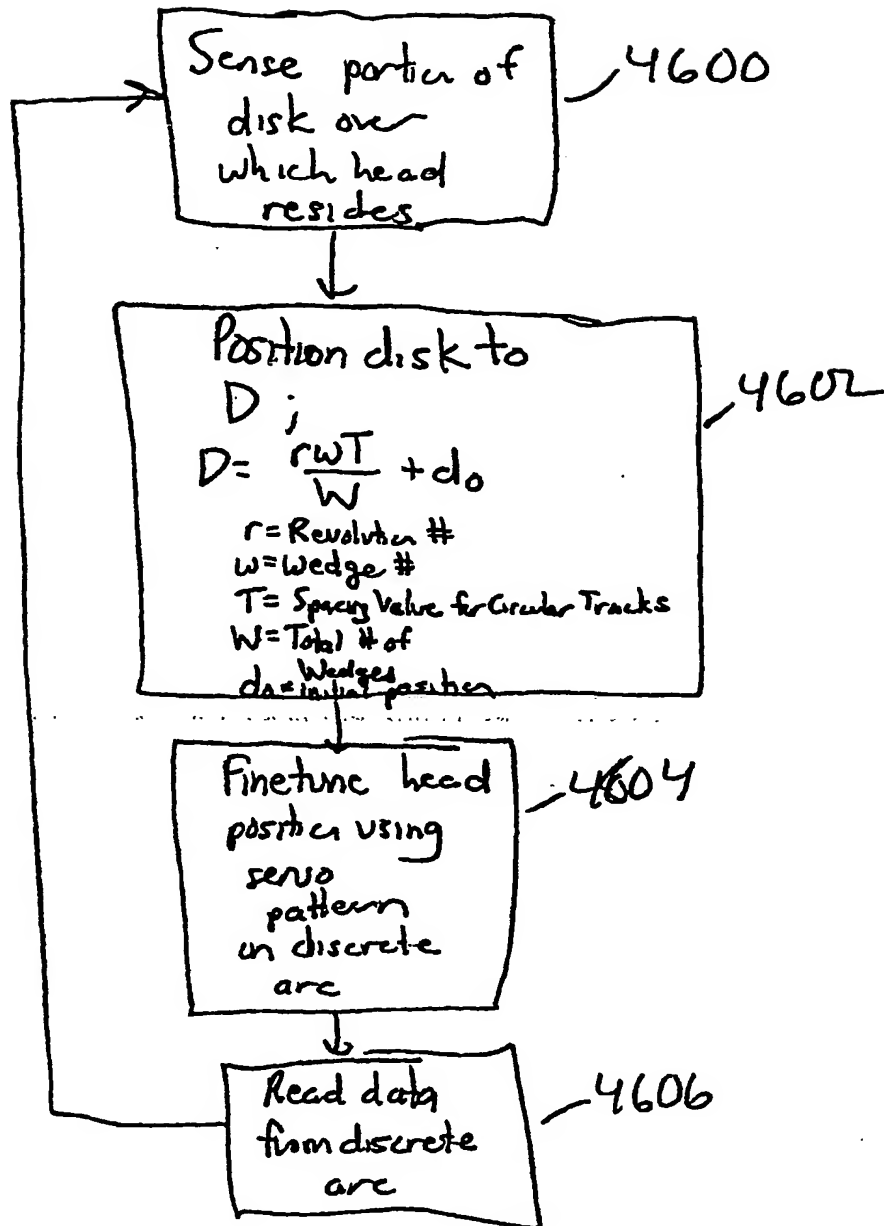 Sense portion of
disk over
which head
resides
4600
Position disk to
D ;
D= rwT/W + d₀
r=Revolution #
w=Wedge #
T= Spacing Value for Circular Tracks
W=Total # of
Wedges
d₀=initial position
4602
Finetune head
position using
servo
pattern
on discrete
arc
4604
Read data
from discrete
arc
4606